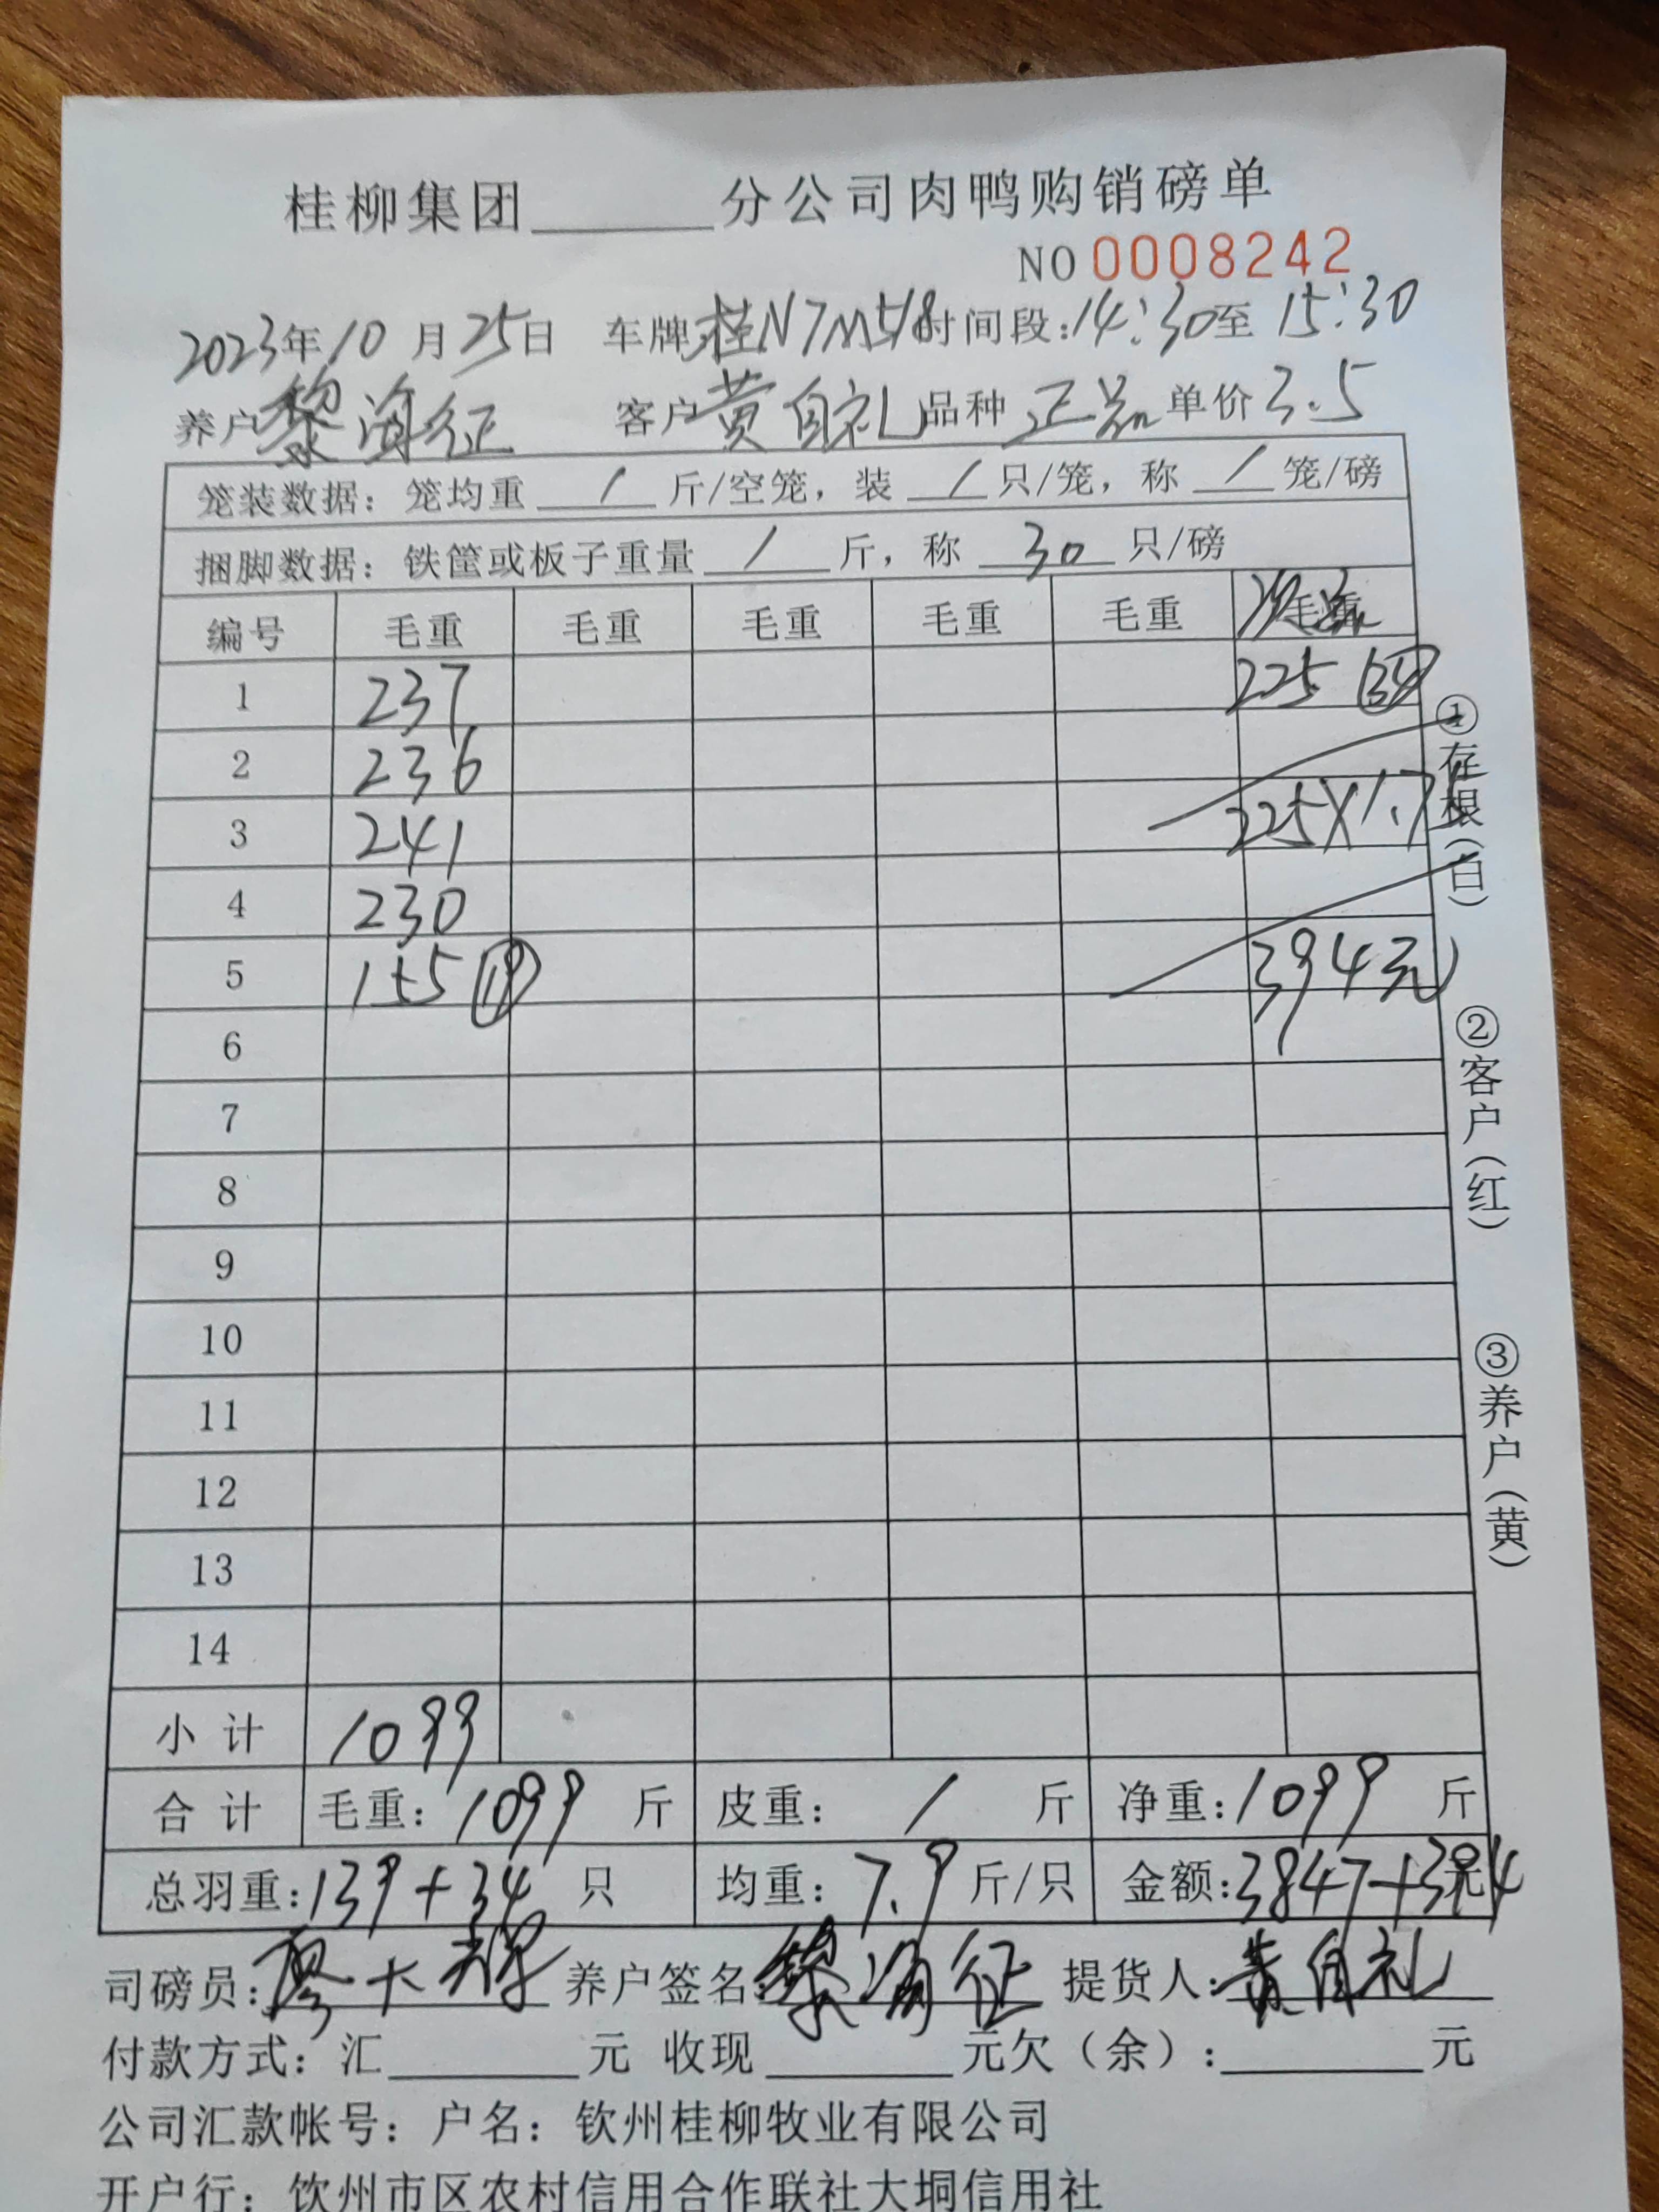 桂柳集团______分公司肉鸭购销磅单
NO 0008242
2023年10月25日 车牌:桂N7M518时间段:14:30至15:30
养户黎海征 客户黄自礼品种正品单价3.5
笼装数据:笼均重 / 斤/空笼,装 / 只/笼,称 / 笼/磅
捆脚数据:铁筐或板子重量 / 斤,称 30 只/磅
编号 毛重 毛重 毛重 毛重 毛重 毛重
1 237 225 34
2 236
3 241 225×1.75
4 230
5 155 19 394元
6
7
8
9
10
11
12
13
14
小计 1099
合计 毛重:1099 斤 皮重: / 斤 净重:1099 斤
总羽重:139+34 只 均重:7.9斤/只 金额:3847+394元
司磅员:廖大 养户签名:黎海征 提货人:黄自礼
付款方式:汇______元 收现______元欠(余):______元
公司汇款帐号:户名:钦州桂柳牧业有限公司
开户行:钦州市区农村信用合作联社大垌信用社
①存根(白)
②客户(红)
③养户(黄)